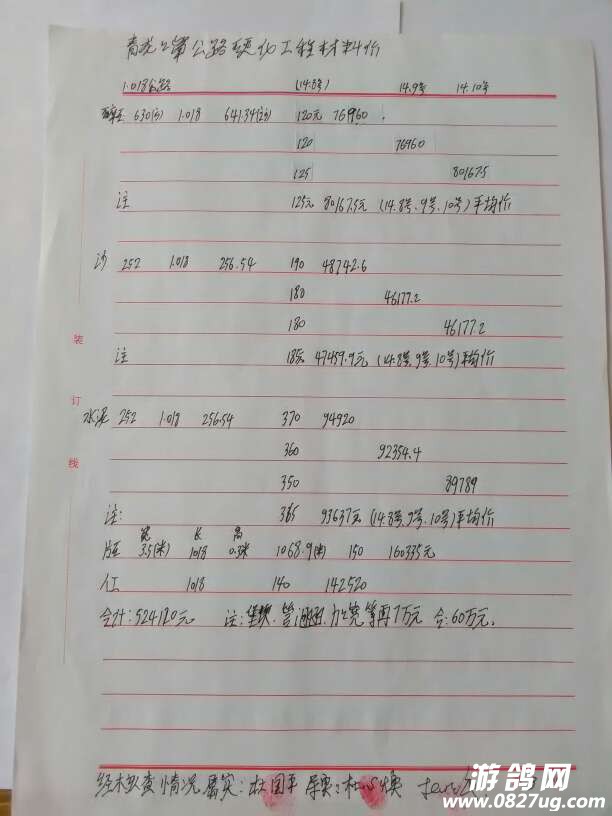 公路硬化工程材料价
1.018公路 (14.8号) 14.9号 14.10号
630(方) 1.018 641.34(方) 120元 76960
120 76960
125 80167.5
注 125元 80167.5元 (14.8号、9号、10号)平均价
沙 252 1.018 256.54 190 48742.6
180 46177.2
180 46177.2
注 185元 47459.9元 (14.8号、9号、10号)平均价
装
订
线
水泥 252 1.018 256.54 370 94920
360 92354.4
350 89789
注: 365 93637元 (14.8号、9号、10号)平均价
宽 长 高
3.5(米) 1018 0.3米 1068.9(方) 150 160335元
人工 1018 140 142520
合计:524120元 注: 加宽等再7万元 合:60万元。
经核查情况属实:杜国平
游鸽网
www.0827ug.com